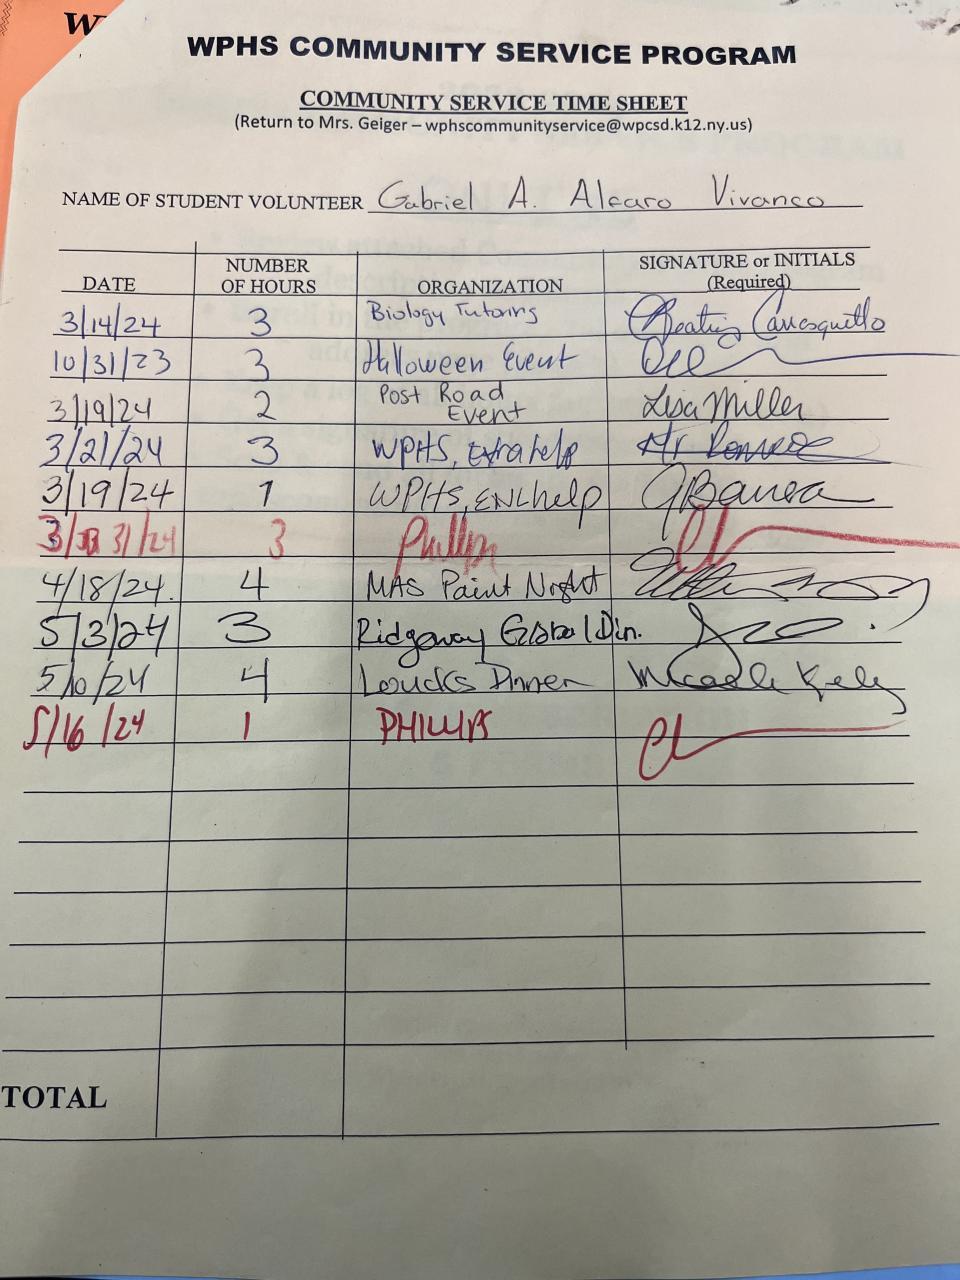 WPHS COMMUNITY SERVICE PROGRAM
COMMUNITY SERVICE TIME SHEET
(Return to Mrs. Geiger – wphscommunityservice@wpcsd.k12.ny.us)
NAME OF STUDENT VOLUNTEER Gabriel A. Alcaro Vivanco
DATE NUMBER OF HOURS ORGANIZATION SIGNATURE or INITIALS (Required)
3/14/24 3 Biology Tutoring
10/31/23 3 Halloween Event
3/19/24 2 Post Road Event Lisa Miller
3/21/24 3 WPHS, Extra help Mr
3/19/24 1 WPHS, ENL help
3/ 31/24 3 Phillips
4/18/24. 4 MAS Paint Night
5/3/24 3 Ridgeway Global Din.
5/10/24 4 Loucks Dinner Kelly
5/16/24 1 PHILLIPS
TOTAL